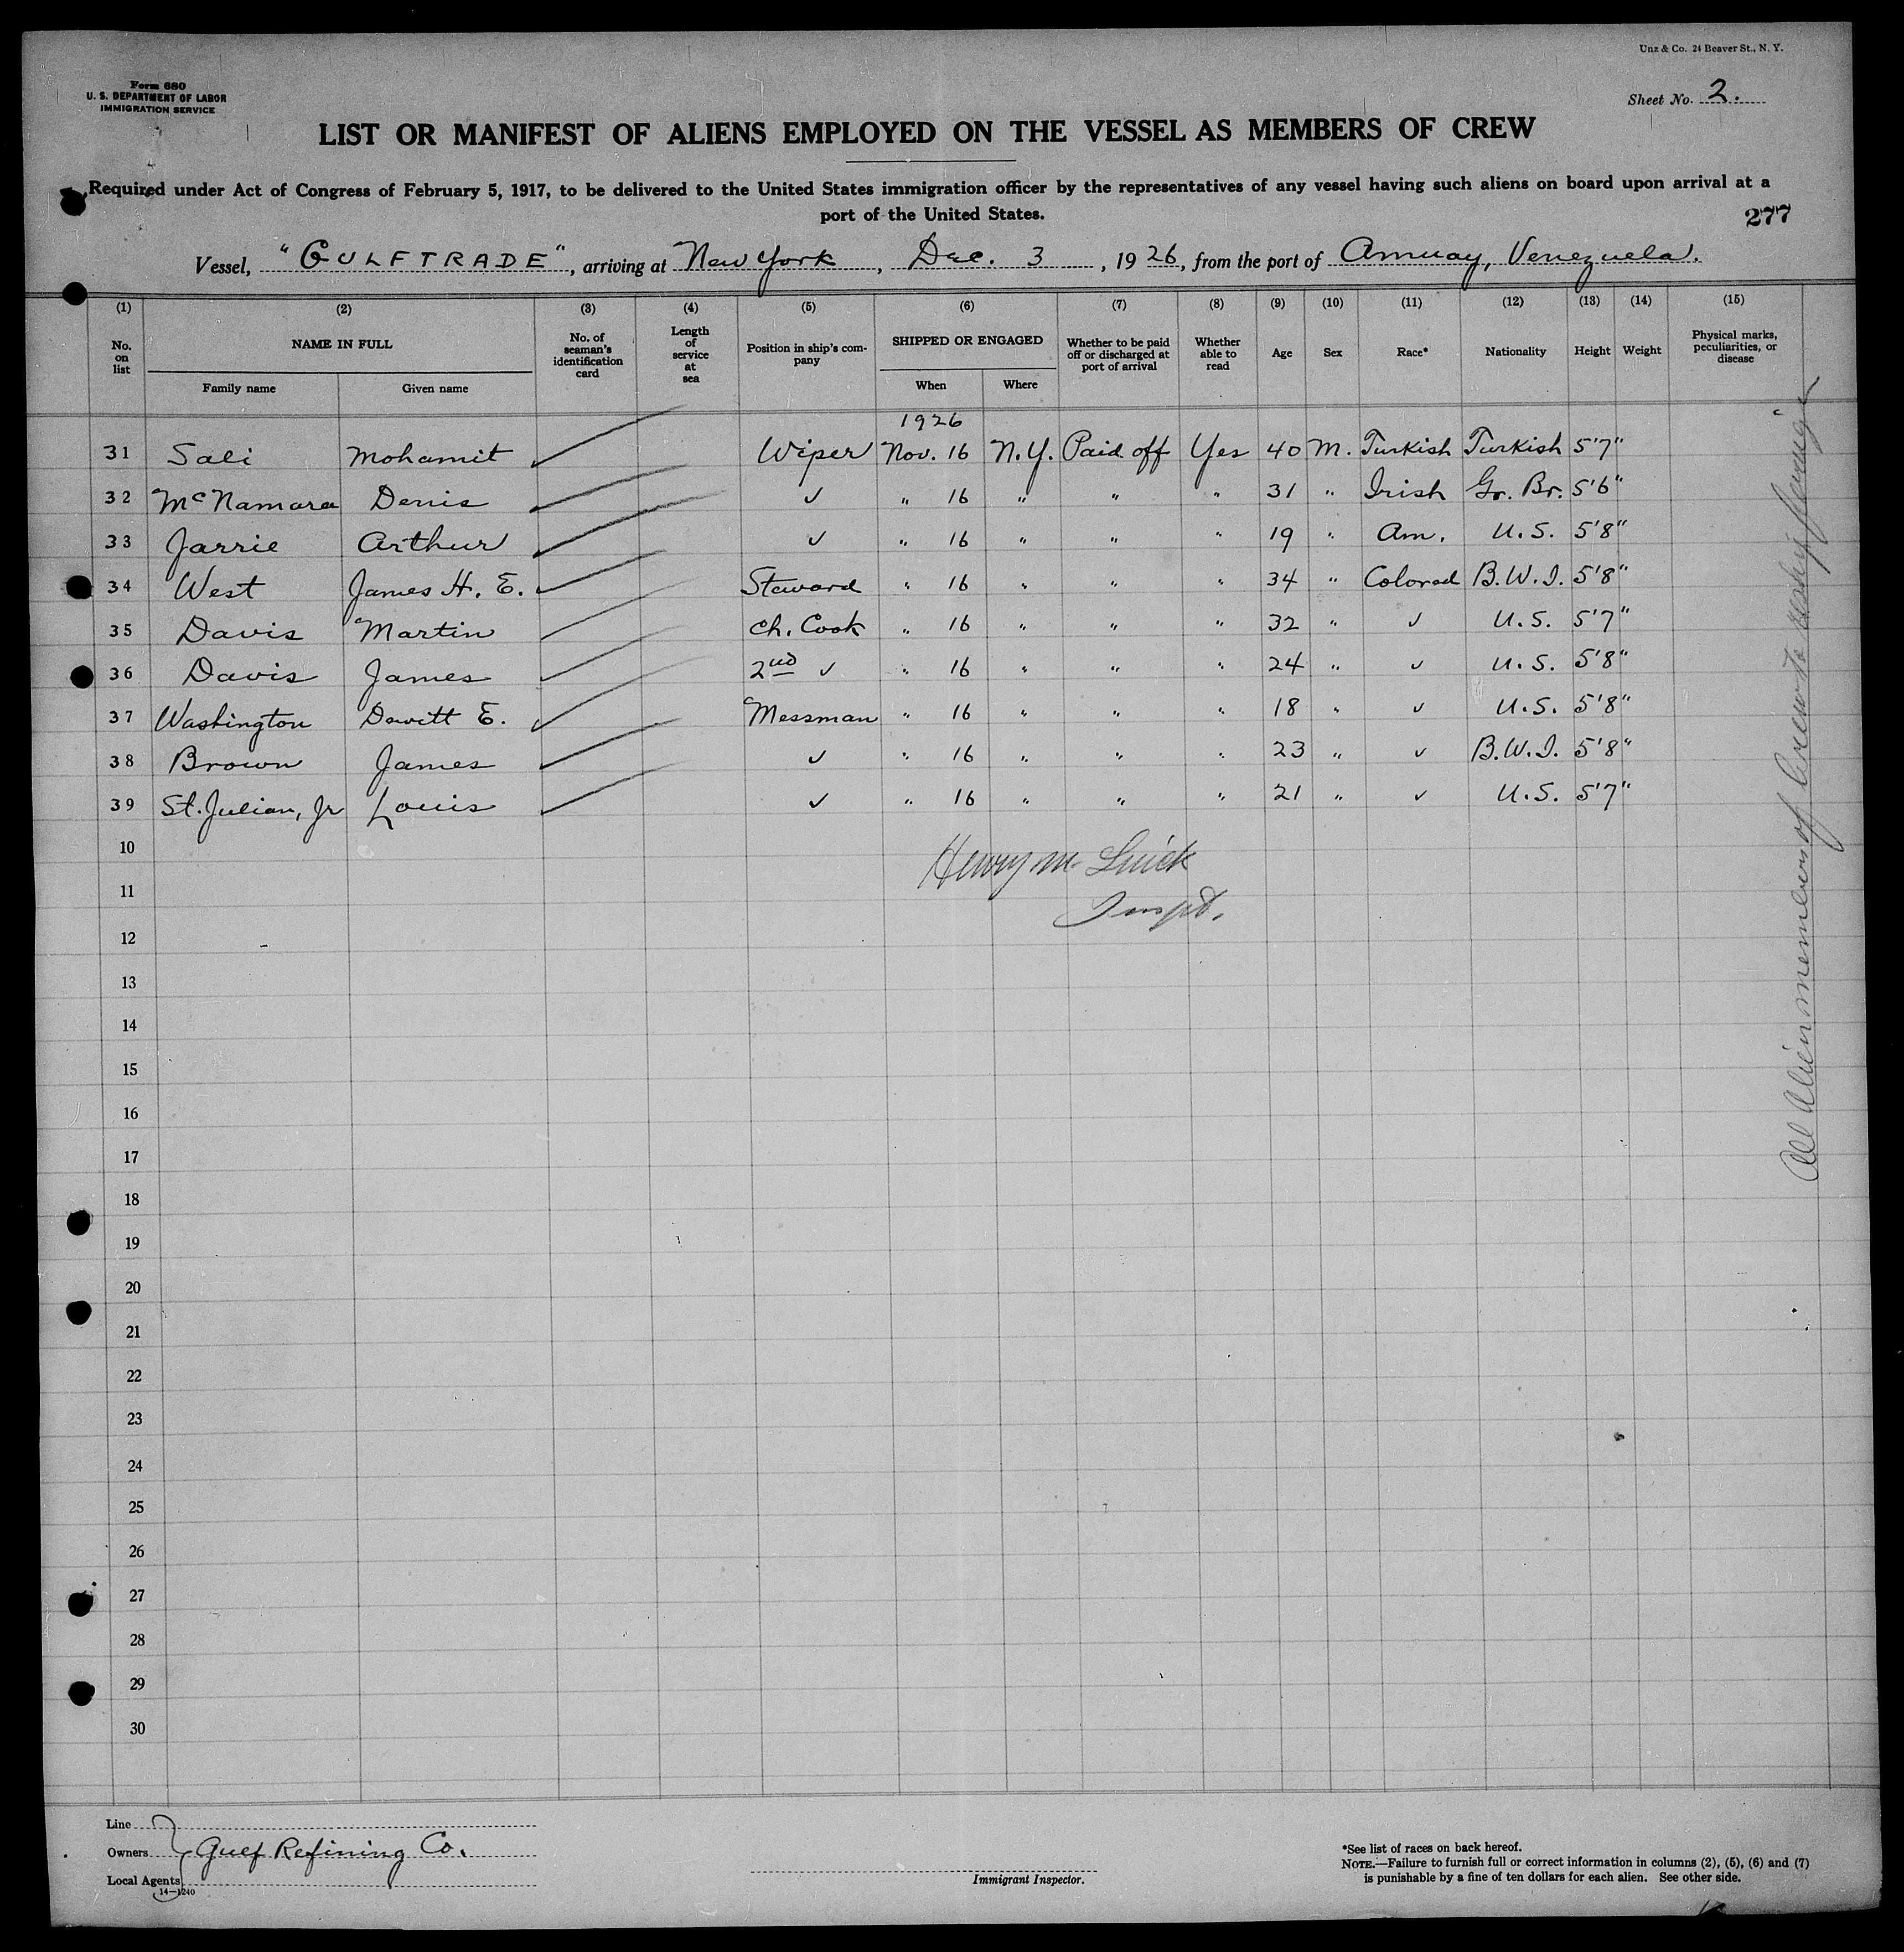 Unz & Co. 24 Beaver St., N. Y.
Form 680
U. S. DEPARTMENT OF LABOR
IMMIGRATION SERVICE
Sheet No. 2.
LIST OR MANIFEST OF ALIENS EMPLOYED ON THE VESSEL AS MEMBERS OF CREW
Required under Act of Congress of February 5, 1917, to be delivered to the United States immigration officer by the representatives of any vessel having such aliens on board upon arrival at a
port of the United States.
277
Vessel, "GULFTRADE", arriving at New York, Dec. 3, 1926, from the port of Amuay, Venezuela.
(1) (2) (3) (4) (5) (6) (7) (8) (9) (10) (11) (12) (13) (14) (15)
No. on list NAME IN FULL Family name Given name No. of seaman's identification card Length of service at sea Position in ship's company SHIPPED OR ENGAGED When Where Whether to be paid off or discharged at port of arrival Whether able to read Age Sex Race* Nationality Height Weight Physical marks, peculiarities, or disease
1926
31 Sali Mohamit Wiper Nov. 16 N.Y. Paid off Yes 40 M. Turkish Turkish 5'7"
32 McNamara Denis ✓ " 16 " " " 31 " Irish Gr. Br. 5'6"
33 Jarrie Arthur ✓ " 16 " " " 19 " Am. U.S. 5'8"
34 West James H. E. Steward " 16 " " " 34 " Colored B.W.I. 5'8"
35 Davis Martin Ch. Cook " 16 " " " 32 " ✓ U.S. 5'7"
36 Davis James 2nd ✓ " 16 " " " 24 " ✓ U.S. 5'8"
37 Washington Dewitt E. Messman " 16 " " " 18 " ✓ U.S. 5'8"
38 Brown James ✓ " 16 " " " 23 " ✓ B.W.I. 5'8"
39 St. Julian, Jr Louis ✓ " 16 " " " 21 " ✓ U.S. 5'7"
10
Henry M.
11
Inspt.
12
13
14
15
16
17
18
19
20
21
22
23
24
25
26
27
28
29
30
All Alien members of Crew to
Line
Owners Gulf Refining Co.
Local Agents
14—1240
Immigrant Inspector.
*See list of races on back hereof.
NOTE.—Failure to furnish full or correct information in columns (2), (5), (6) and (7)
is punishable by a fine of ten dollars for each alien. See other side.